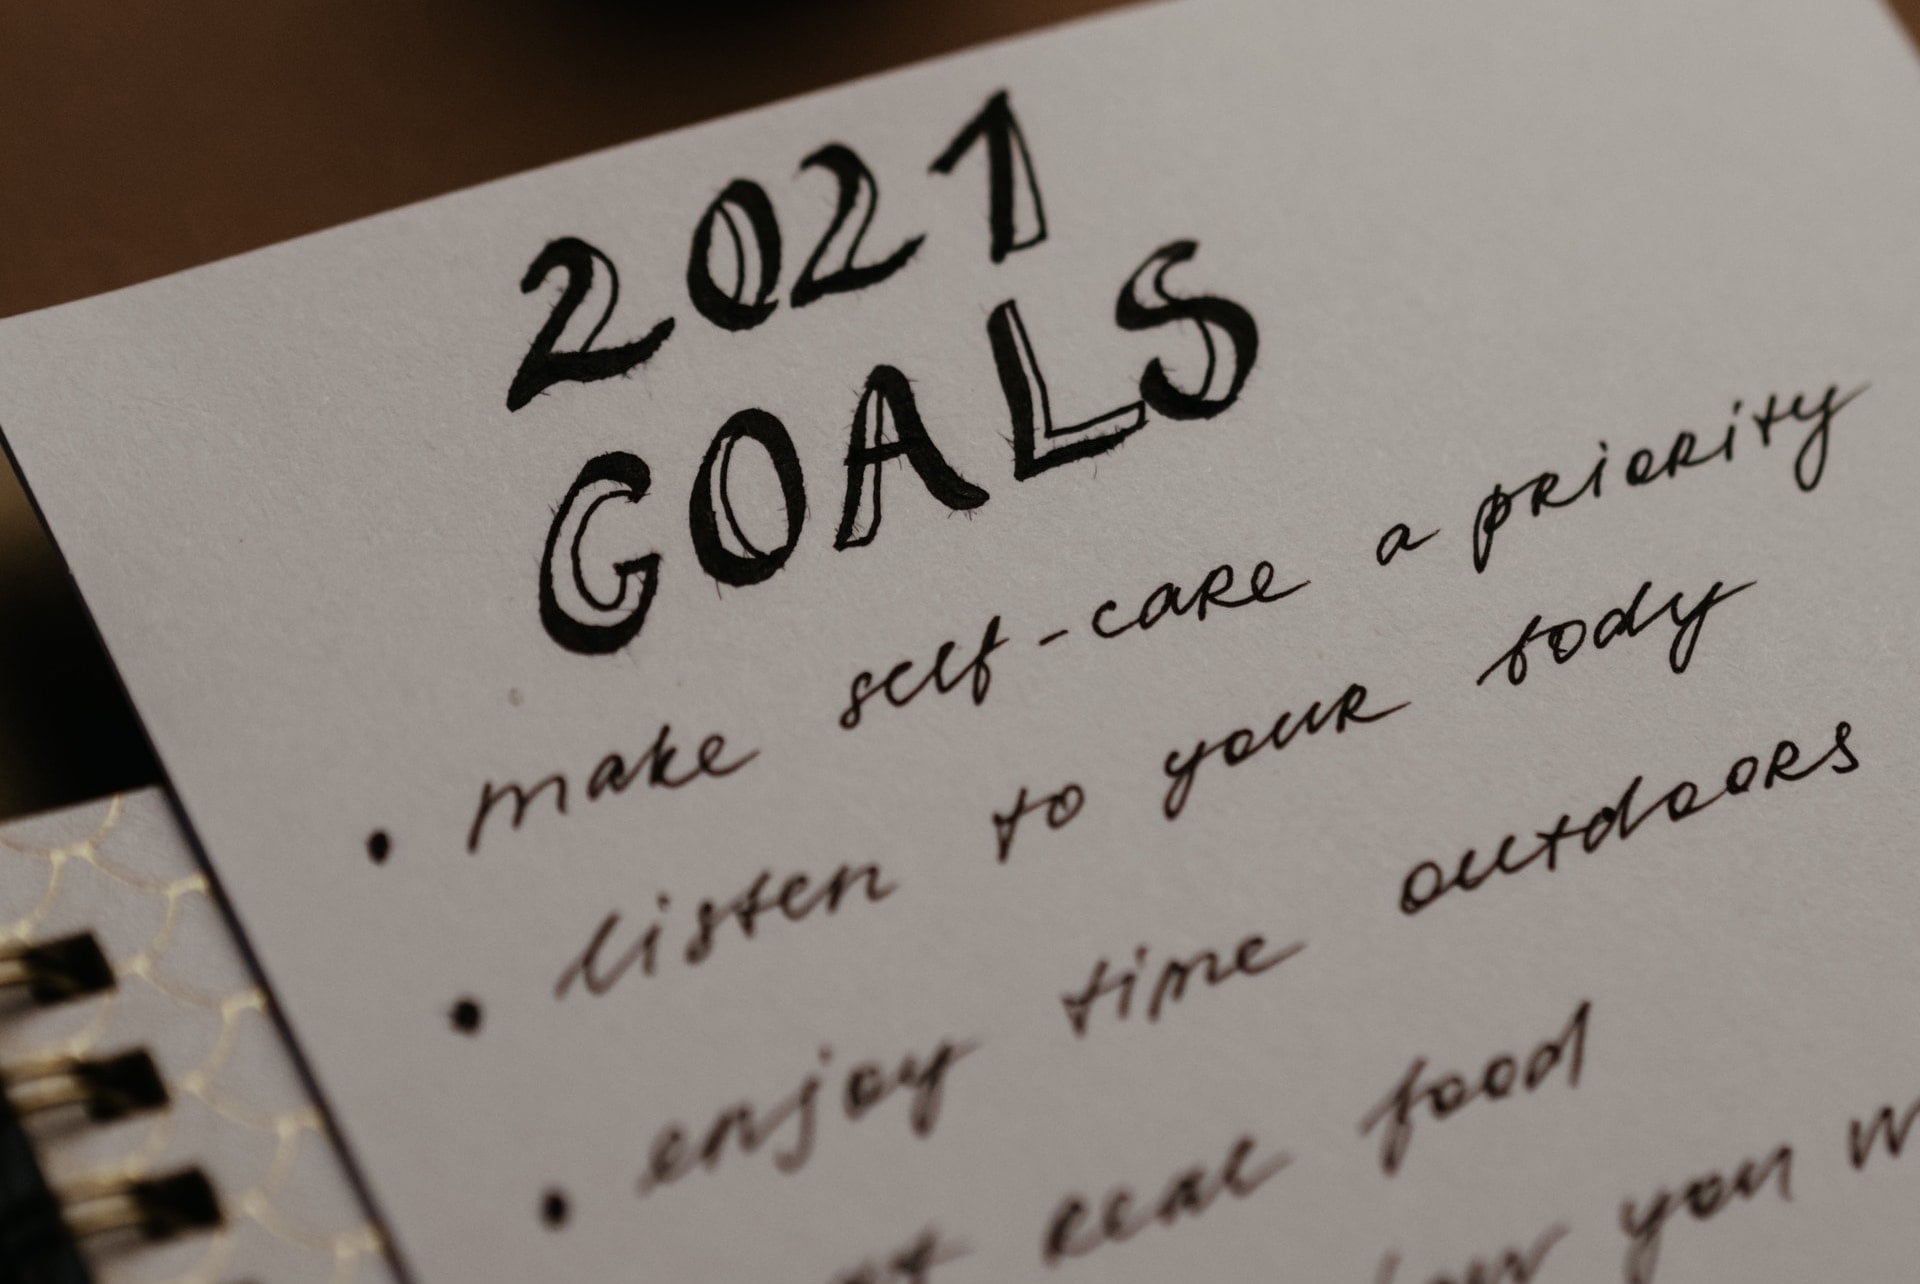 2021
GOALS
• make self-care a priority
• listen to your body
• enjoy time outdoors
real food
you